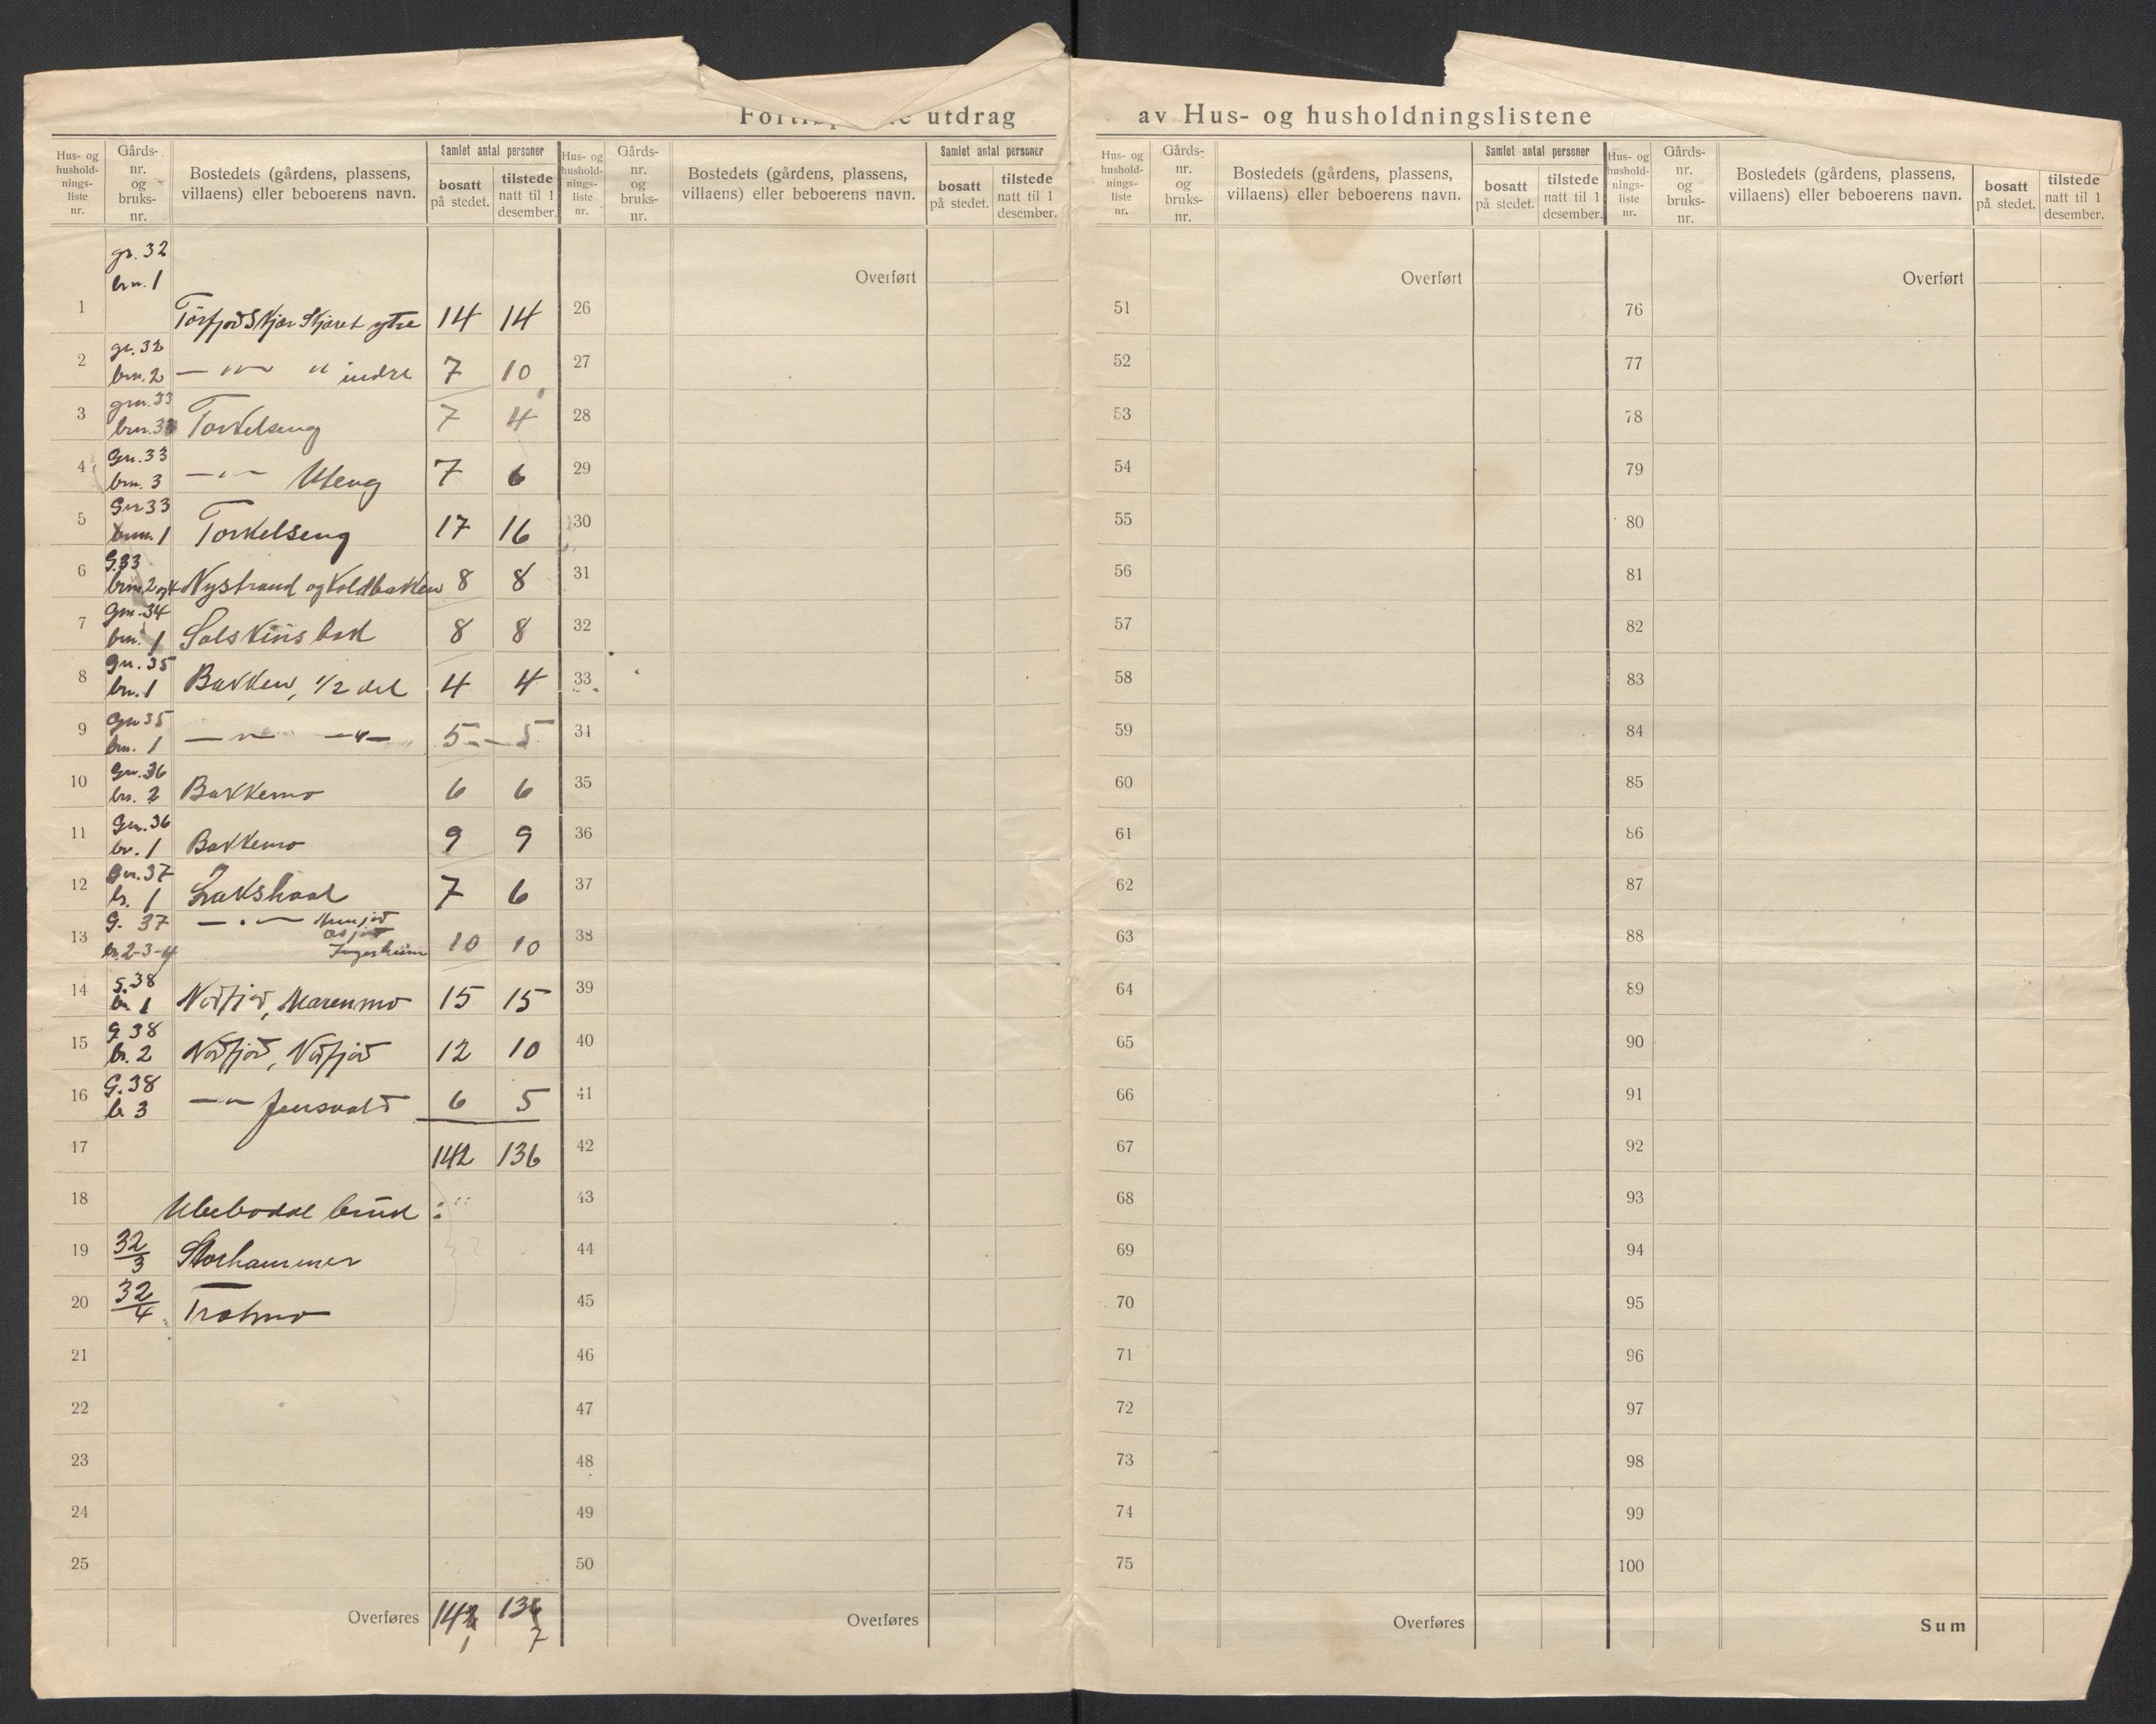 utdrag av Hus- og husholdningslistene
Hus- og hushold- nings- liste nr.
Gårds- nr. og bruks- nr.
Bostedets (gårdens, plassens, villaens) eller beboerens navn.
Samlet antal personer
bosatt på stedet.
tilstede natt til 1 desember.
Hus- og hushold- nings- liste nr.
Gårds- nr. og bruks- nr.
Bostedets (gårdens, plassens, villaens) eller beboerens navn.
Samlet antal personer
bosatt på stedet.
tilstede natt til 1 desember.
Hus- og hushold- nings- liste nr.
Gårds- nr. og bruks- nr.
Bostedets (gårdens, plassens, villaens) eller beboerens navn.
Samlet antal personer
bosatt på stedet.
tilstede natt til 1 desember.
Hus- og hushold- nings- liste nr.
Gårds- nr. og bruks- nr.
Bostedets (gårdens, plassens, villaens) eller beboerens navn.
bosatt på stedet.
tilstede natt til 1 desember.
gr. 32
brn. 1
1 ytre 14 14
2 gr. 32 brn. 2 — " — " indre 7 10
3 grn. 33 Torkelseng 7 4
4 Gn. 33 brn. 3 — " — Uteng 7 6
5 Gn 33 brn. 1 Torkelseng 17 16
6 G.33 brn. 2 og 4 Nystrand og Koldbakken 8 8
7 Gn. 34 brn. 1 8 8
8 Gn. 35 bn. 1 Bakken, 1/2 del 4 4
9 Gn 35 bn. 1 — " — — " — 5 — 5
10 Gn. 36 bn. 2 Bakkemo 6 6
11 Gn. 36 br. 1 Bakkemo 9 9
12 Gn. 37 b. 1 7 6
13 G. 37 b. 2-3-4 — " — Ingesheim 10 10
14 G. 38 b. 1 Norfjord, Marenmo 15 15
15 G 38 b. 2 Norfjord, Norfjord 12 10
16 G. 38 b. 3 — " — Jensvold 6 5
17 142 136
18 Ubebodde bruk :
19 32/3 Storhammer
20 32/4 Tratmo
21
22
23
24
25
Overføres 142 136
1 7
Overført
26
27
28
29
30
31
32
33
34
35
36
37
38
39
40
41
42
43
44
45
46
47
48
49
50
Overføres
Overført
51
52
53
54
55
56
57
58
59
60
61
62
63
64
65
66
67
68
69
70
71
72
73
74
75
Overføres
Overført
76
77
78
79
80
81
82
83
84
85
86
87
88
89
90
91
92
93
94
95
96
97
98
99
100
Sum